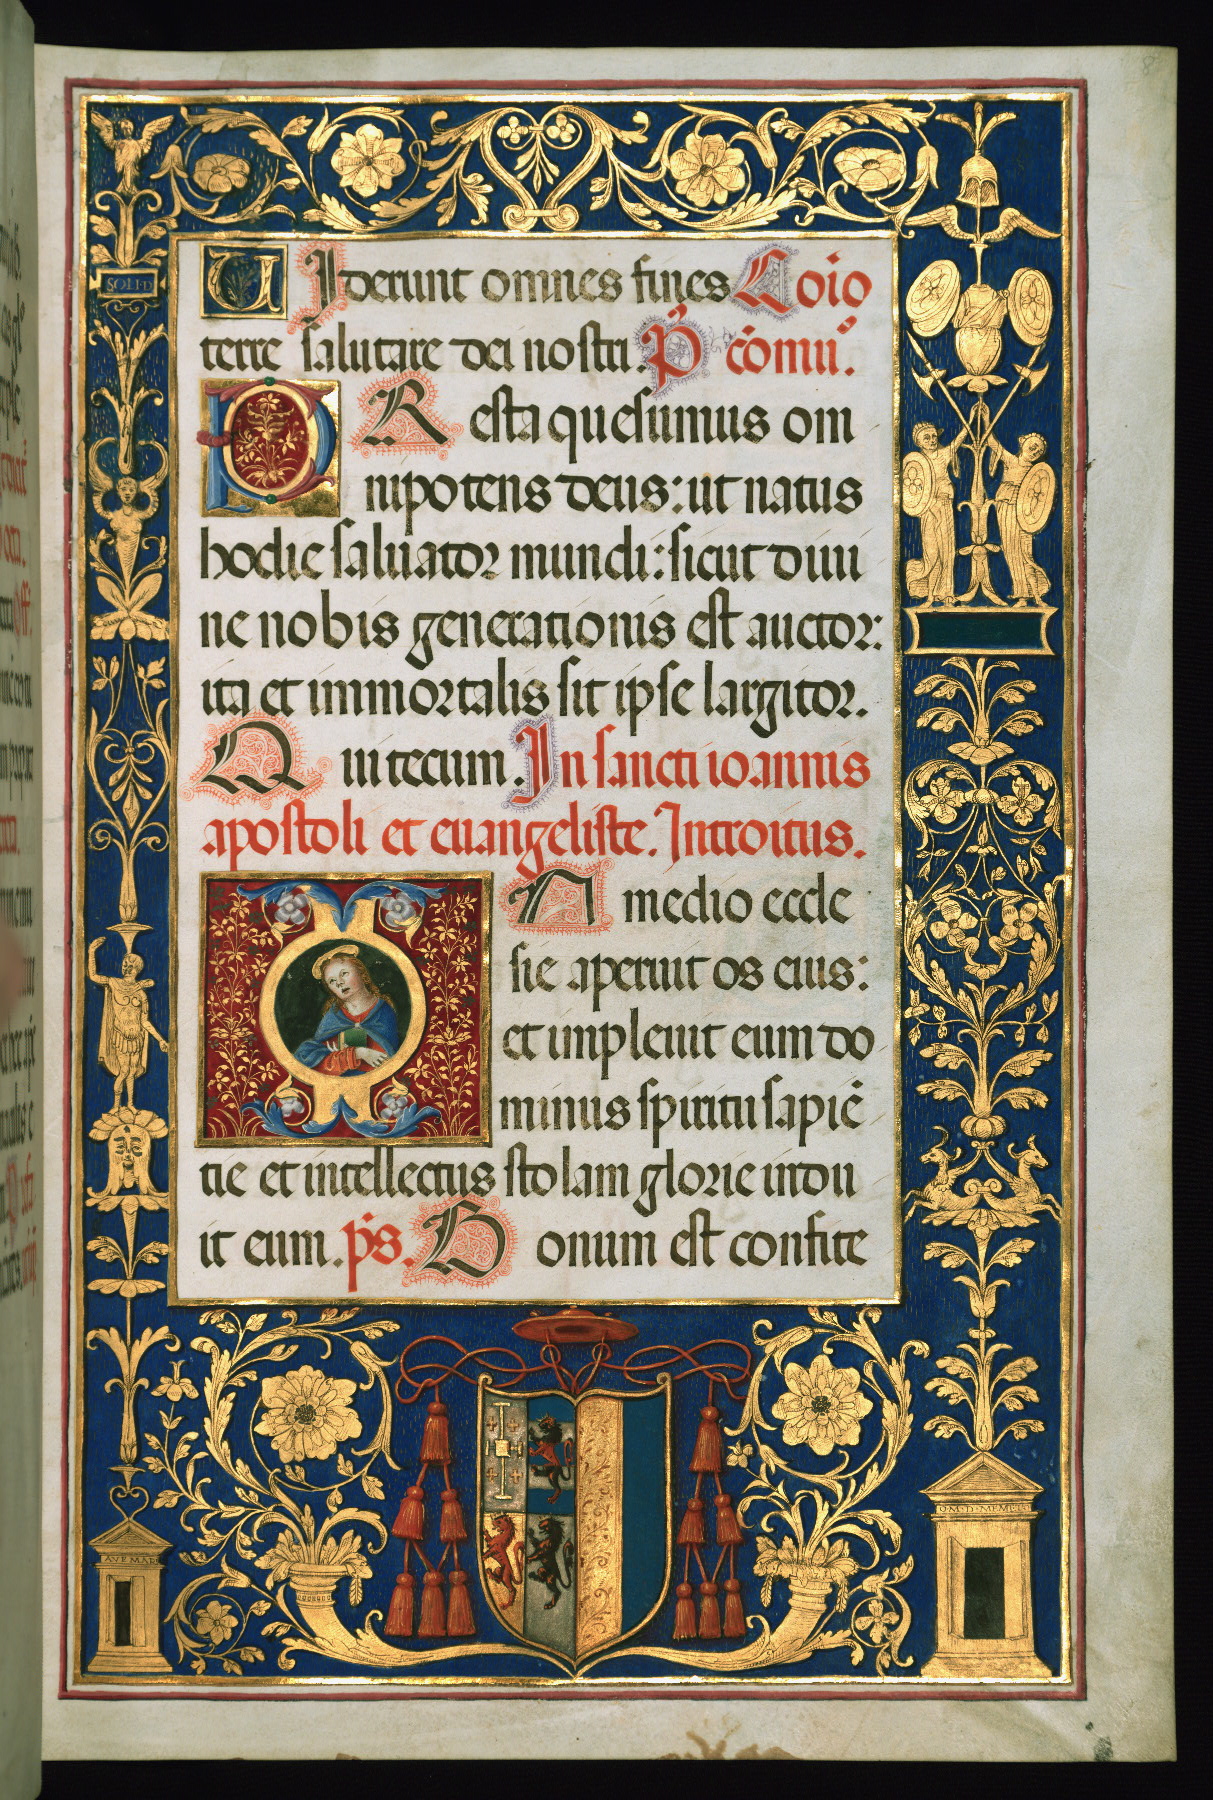 UIderunt omnes fines Cōio
terre salutare dei nostri. P̄ cōmū.
PResta quesumus om
nipotens deus: ut natus
hodie saluator mundi: sicut diui
ne nobis generationis est auctor:
ita et immortalis sit ipse largitor.
Qui tecum. In sancti ioannis
apostoli et euangeliste. Introitus.
IN medio eccle
sie aperuit os eius:
et impleuit eum do
minus spiritu sapiē
tie et intellectus stolam glorie indu
it eum. p̄s. Bonum est confite
SOLI·D
AVE MAR